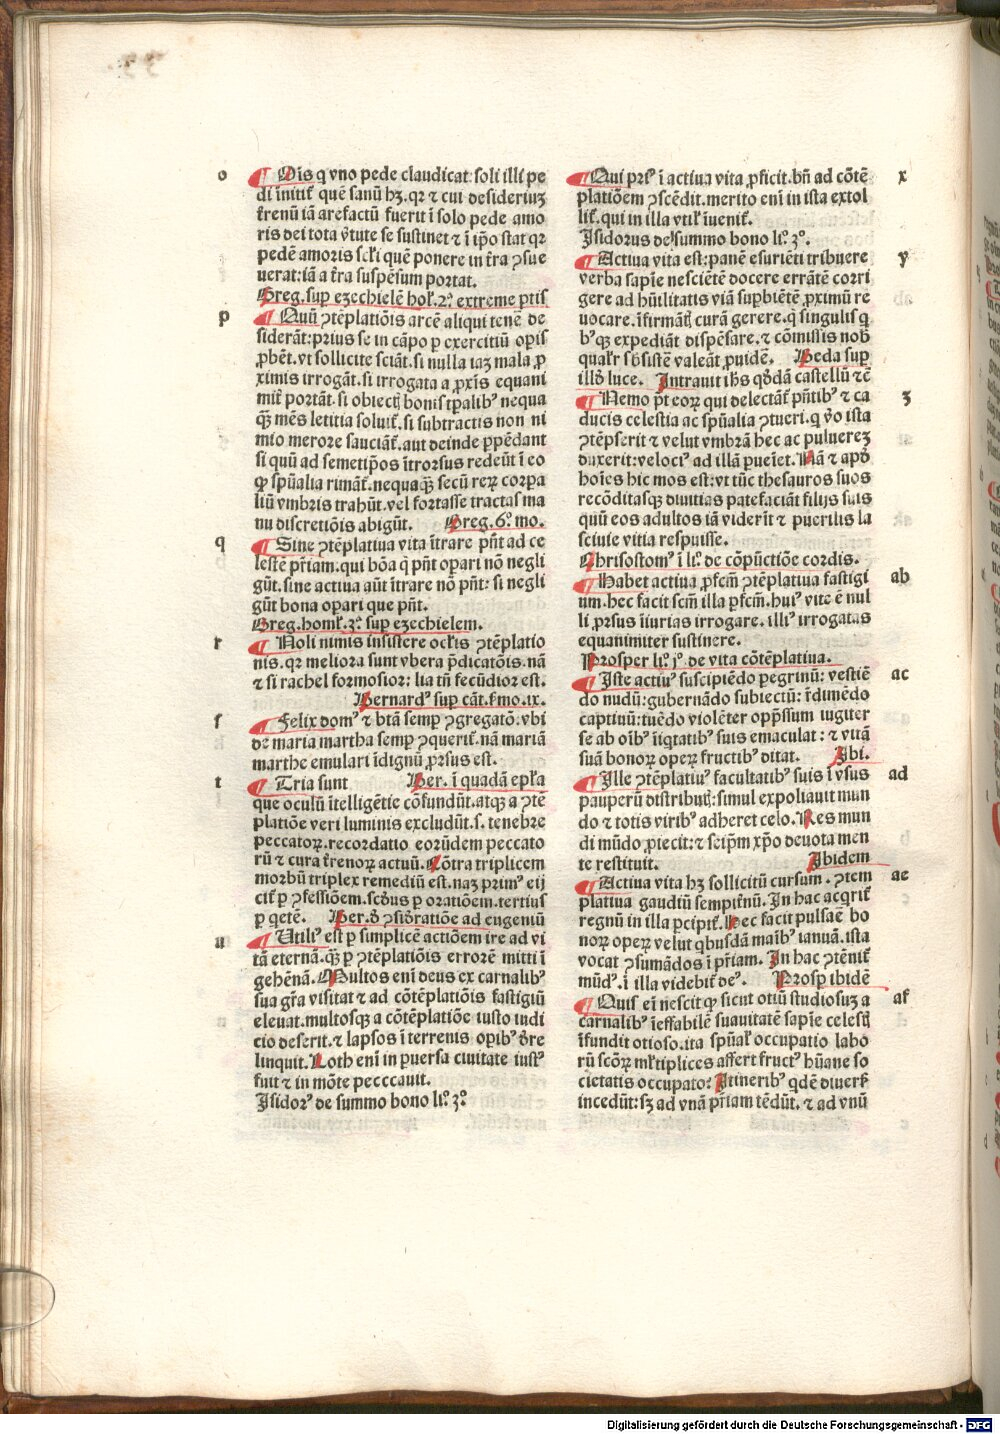 o
¶ Ois q vno pede claudicat: soli illi pe
di initit̃ quē sanū hꝫ. qꝛ ⁊ cui desideriuꝫ
t̃renū iā arefactū fuerit ī solo pede amo
ris dei tota ṽtute se sustinet ⁊ ī ip̄o stat qꝛ
pedē amoris sc̄i quē ponere in t̃ra ꝯsue
uerat: iā a t̃ra suspēsum portat.
Greg. sup ezechielē hoł. 2ᵃ. extreme ꝑtis
p
¶ Quū ꝯtēplatiōis arcē aliqui tenē de
siderāt: prius se in cāpo ꝑ exercitiū opis
ꝓbēt. vt sollicite sciāt. si nulla iaꝫ mala ꝓ
ximis irrogāt. si irrogata a ꝓxīs equani
mit̃ portāt. si obiectꝭ bonis tꝑalibꝰ nequa
qꝫ mēs letitia soluit̃. si subtractis non ni
mio merore sauciāt̃. aut deinde ꝑpēdant
si quū ad semetip̄os ītrorsus redeūt ī eo
ꝙ sp̄ualia rimāt̃. nequaqꝫ secū reꝝ corpa
liū vmbris trahūt. vel fortasse tractas ma
nu discretiōis abigūt. Greg. 6ᵒ. mo.
q
¶ Sine ꝯtēplatiua vita ītrare pn̄t ad ce
lestē pr̄iam. qui bōa q̄ pn̄t opari nō negli
gūt. sine actiua aūt ītrare nō pn̄t: si negli
gūt bona opari que pn̄t.
Greg. homł. 3ᵃ. sup ezechielem.
r
¶ Noli nimis insistere oc̄ис ꝯtēplatio
nis. qꝛ meliora sunt vbera p̄dicatōis. nā
⁊ si rachel formosior: lia tn̄ fecūdior est.
Bernardꝰ sup cāt. f̃mo. ix.
ſ
¶ Felix domꝰ ⁊ btā semp ꝯgregatō: vbi
de maria martha semp ꝯquerit̃. nā mariā
marthe emulari īdignū ꝓrsus est.
t
¶ Tria sunt Ber. ī quadā epl̄a
que oculū ītelligētie cōfundūt. atqꝫ a ꝯtē
platiōe veri luminis excludūt. s. tenebre
peccatoꝝ. recordatio eorūdem peccato
rū ⁊ cura t̃renoꝝ actuū. Cōtra triplicem
morbū triplex remediū est. naꝫ primꝰ eij
cit̃ ꝑ ꝯfessiōem. scd̄us ꝑ oratiōem. tertius
ꝑ q̄etē. Ber. d̄ ꝯsid̄ratiōe ad eugeniū
u
¶ Utiliꝰ est ꝑ simplicē actiōem ire ad vi
tā eternā. qꝫ ꝑ ꝯtēplatiōis errorē mitti ī
gehēnā. Multos eni deus ex carnalibꝰ
sua gr̄a visitat ⁊ ad cōtēplatiōis fastigiū
eleuat. multosqꝫ a cōtēplatiōe iusto iudi
cio deserit. ⁊ lapsos ī terrenis opibꝰ d̄re
linquit. Loth eni in ꝑuersa ciuitate iustꝰ
fuit ⁊ in mōte pecccauit.
Isidorꝰ de summo bono liᵒ. 3ᵒ.
x
¶ Qui priꝰ ī actiua vita ꝓficit. bn̄ ad cōtē
platiōem ꝯscēdit. merito eni in ista extol
lit̃. qui in illa vtił īuenit̃.
Isidorus de summo bono liᵒ. 3ᵒ.
y
¶ Actiua vita est: panē esuriēti tribuere
verba sapīe nesciētē docere errātē corri
gere ad hūilitatis viā supbiētē ꝓximū re
uocare. īfirmātꝭ curā gerere. q̄ singulis q̄
bꝰqꝫ expediāt dispēsare. ⁊ cōmissis nob̄
qualr̃ sb̄sistē valeāt ꝓuidē. Beda sup
illd̄ luce. Intrauit ih̄s qd̄dā castellū ⁊c̄
z
¶ Nemo pt̄ eoꝝ qui delectāt̃ pn̄tibꝰ ⁊ ca
ducis celestia ac sp̄ualia ꝯtueri. q̄ v̄o ista
ꝯtēpserit ⁊ velut vmbrā hec ac puluereꝫ
duxerit: velociꝰ ad illā ꝑueīet. Nā ⁊ apd̄
hoīes hic mos est: vt tūc thesauros suos
recōditasqꝫ diuitias patefaciāt filijs suis
quū eos adultos iā viderīt ⁊ puerilis la
sciuie vitia respuisse.
Chrisostomꝰ ī liᵒ. de cōpūctiōe cordis.
ab
¶ Habet actiua ꝓfcm̄ ꝯtēplatiua fastigi
um. hec facit scm̄ illa ꝑfcm̄. huiꝰ vite ē nul
li ꝓrsus īiurias irrogare. illiꝰ irrogatas
equanimiter sustinere.
Prosper liᵒ. jᵒ. de vita cōtēplatiua.
ac
¶ Iste actiuꝰ suscipiēdo ꝑegrinū: vestiē
do nudū: gubernādo subiectū: r̄dimēdo
captiuū: tuēdo violēter opp̄ssum iugiter
se ab oīb̄ꝰ īiqtatibꝰ suis emaculat: ⁊ vitā
suā bonoꝝ opeꝝ fructibꝰ ditat. Ibi.
ad
¶ Ille ꝯtēplatiuꝰ facultatibꝰ suis ī vsus
pauperū distributꝭ: simul expoliauit mun
do ⁊ totis viribꝰ adheret celo. Res mun
di mūdo ꝓiecit: ⁊ seipm̄ xp̄o deuota men
te restituit. Ibidem
ae
¶ Actiua vita hꝫ sollicitū cursum. ꝯtem
platiua gaudiū sempit̃nū. In hac acqrit̃
regnū in illa ꝑcipit̃. Hec facit pulsaē bo
noꝝ opeꝝ velut qbusdā maībꝰ ianuā. ista
vocat ꝯsumādos ī pr̄iam. In hac ꝯtēnit̃
mūdꝰ. ī illa videbit̃ deꝰ. Prosp ibidē
af
¶ Quis ei nescit ꝙ sicut otiū studiosuꝫ a
carnalibꝰ īeffabilē suauitatē sapīe celestꝭ
īfundit otioso. ita sp̄ual̓ occupatio labo
rū scōꝝ ml̓tiplices affert fructꝰ hūane so
cietatis occupato? Itineribꝰ qdē diuers̓
incedūt: sꝫ ad vnā pr̄iam tēdūt. ⁊ ad vnū
Digitalisierung gefördert durch die Deutsche Forschungsgemeinschaft - DFG